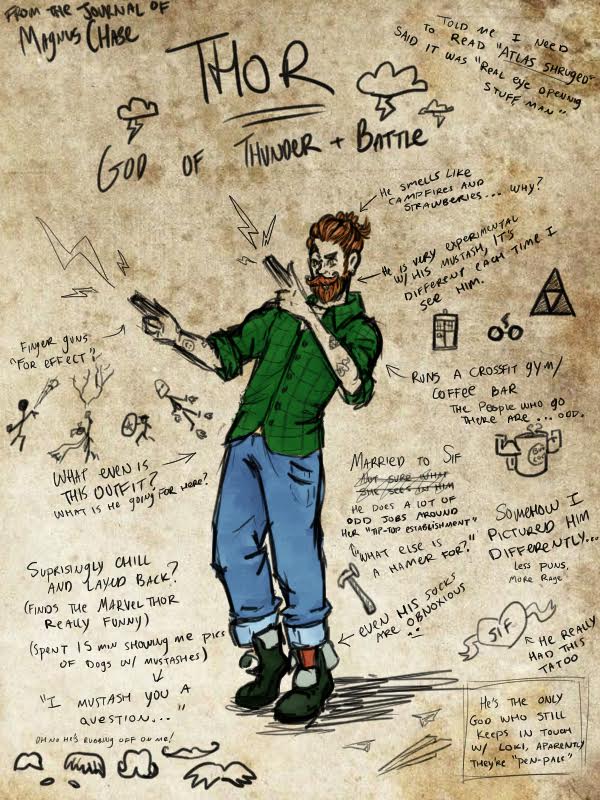 FROM THE JOURNAL OF
MAGNUS CHASE
TOLD ME I NEED
TO READ "ATLAS SHRUGED"
SAID IT WAS "REAL EYE OPENING
STUFF MAN"
THOR
GOD OF THUNDER + BATTLE
HE SMELLS LIKE
CAMPFIRES AND
STRAWBERRIES... WHY?
HE IS VERY EXPERIMENTAL
W/ HIS MUSTASH, IT'S
DIFFERENT EACH TIME I
SEE HIM.
FINGER GUNS
"FOR EFFECT"
RUNS A CROSSFIT GYM/
COFFEE BAR
THE PEOPLE WHO GO
THERE ARE... ODD.
WHAT EVEN IS
THIS OUTFIT?
WHAT IS HE GOING FOR HERE?
MARRIED TO SIF
NOT SURE WHAT
SHE SEES IN HIM
HE DOES A LOT OF
ODD JOBS AROUND
HER "TIP-TOP ESTABLISHMENT"
"WHAT ELSE IS
A HAMER FOR?"
SOMEHOW I
PICTURED HIM
DIFFERENTLY...
LESS PUNS,
MORE RAGE
SUPRISINGLY CHILL
AND LAYED BACK?
(FINDS THE MARVEL THOR
REALLY FUNNY)
(SPENT 15 MIN SHOWING ME PICS
OF DOGS W/ MUSTASHES)
"I MUSTASH YOU A
QUESTION..."
OH NO HE'S RUBBING OFF ON ME!
EVEN HIS SOCKS
ARE OBNOXIOUS
SIF
HE REALLY
HAD THIS
TATOO
HE'S THE ONLY
GOD WHO STILL
KEEPS IN TOUCH
W/ LOKI, APARENTLY
THEY'RE "PEN-PALS"